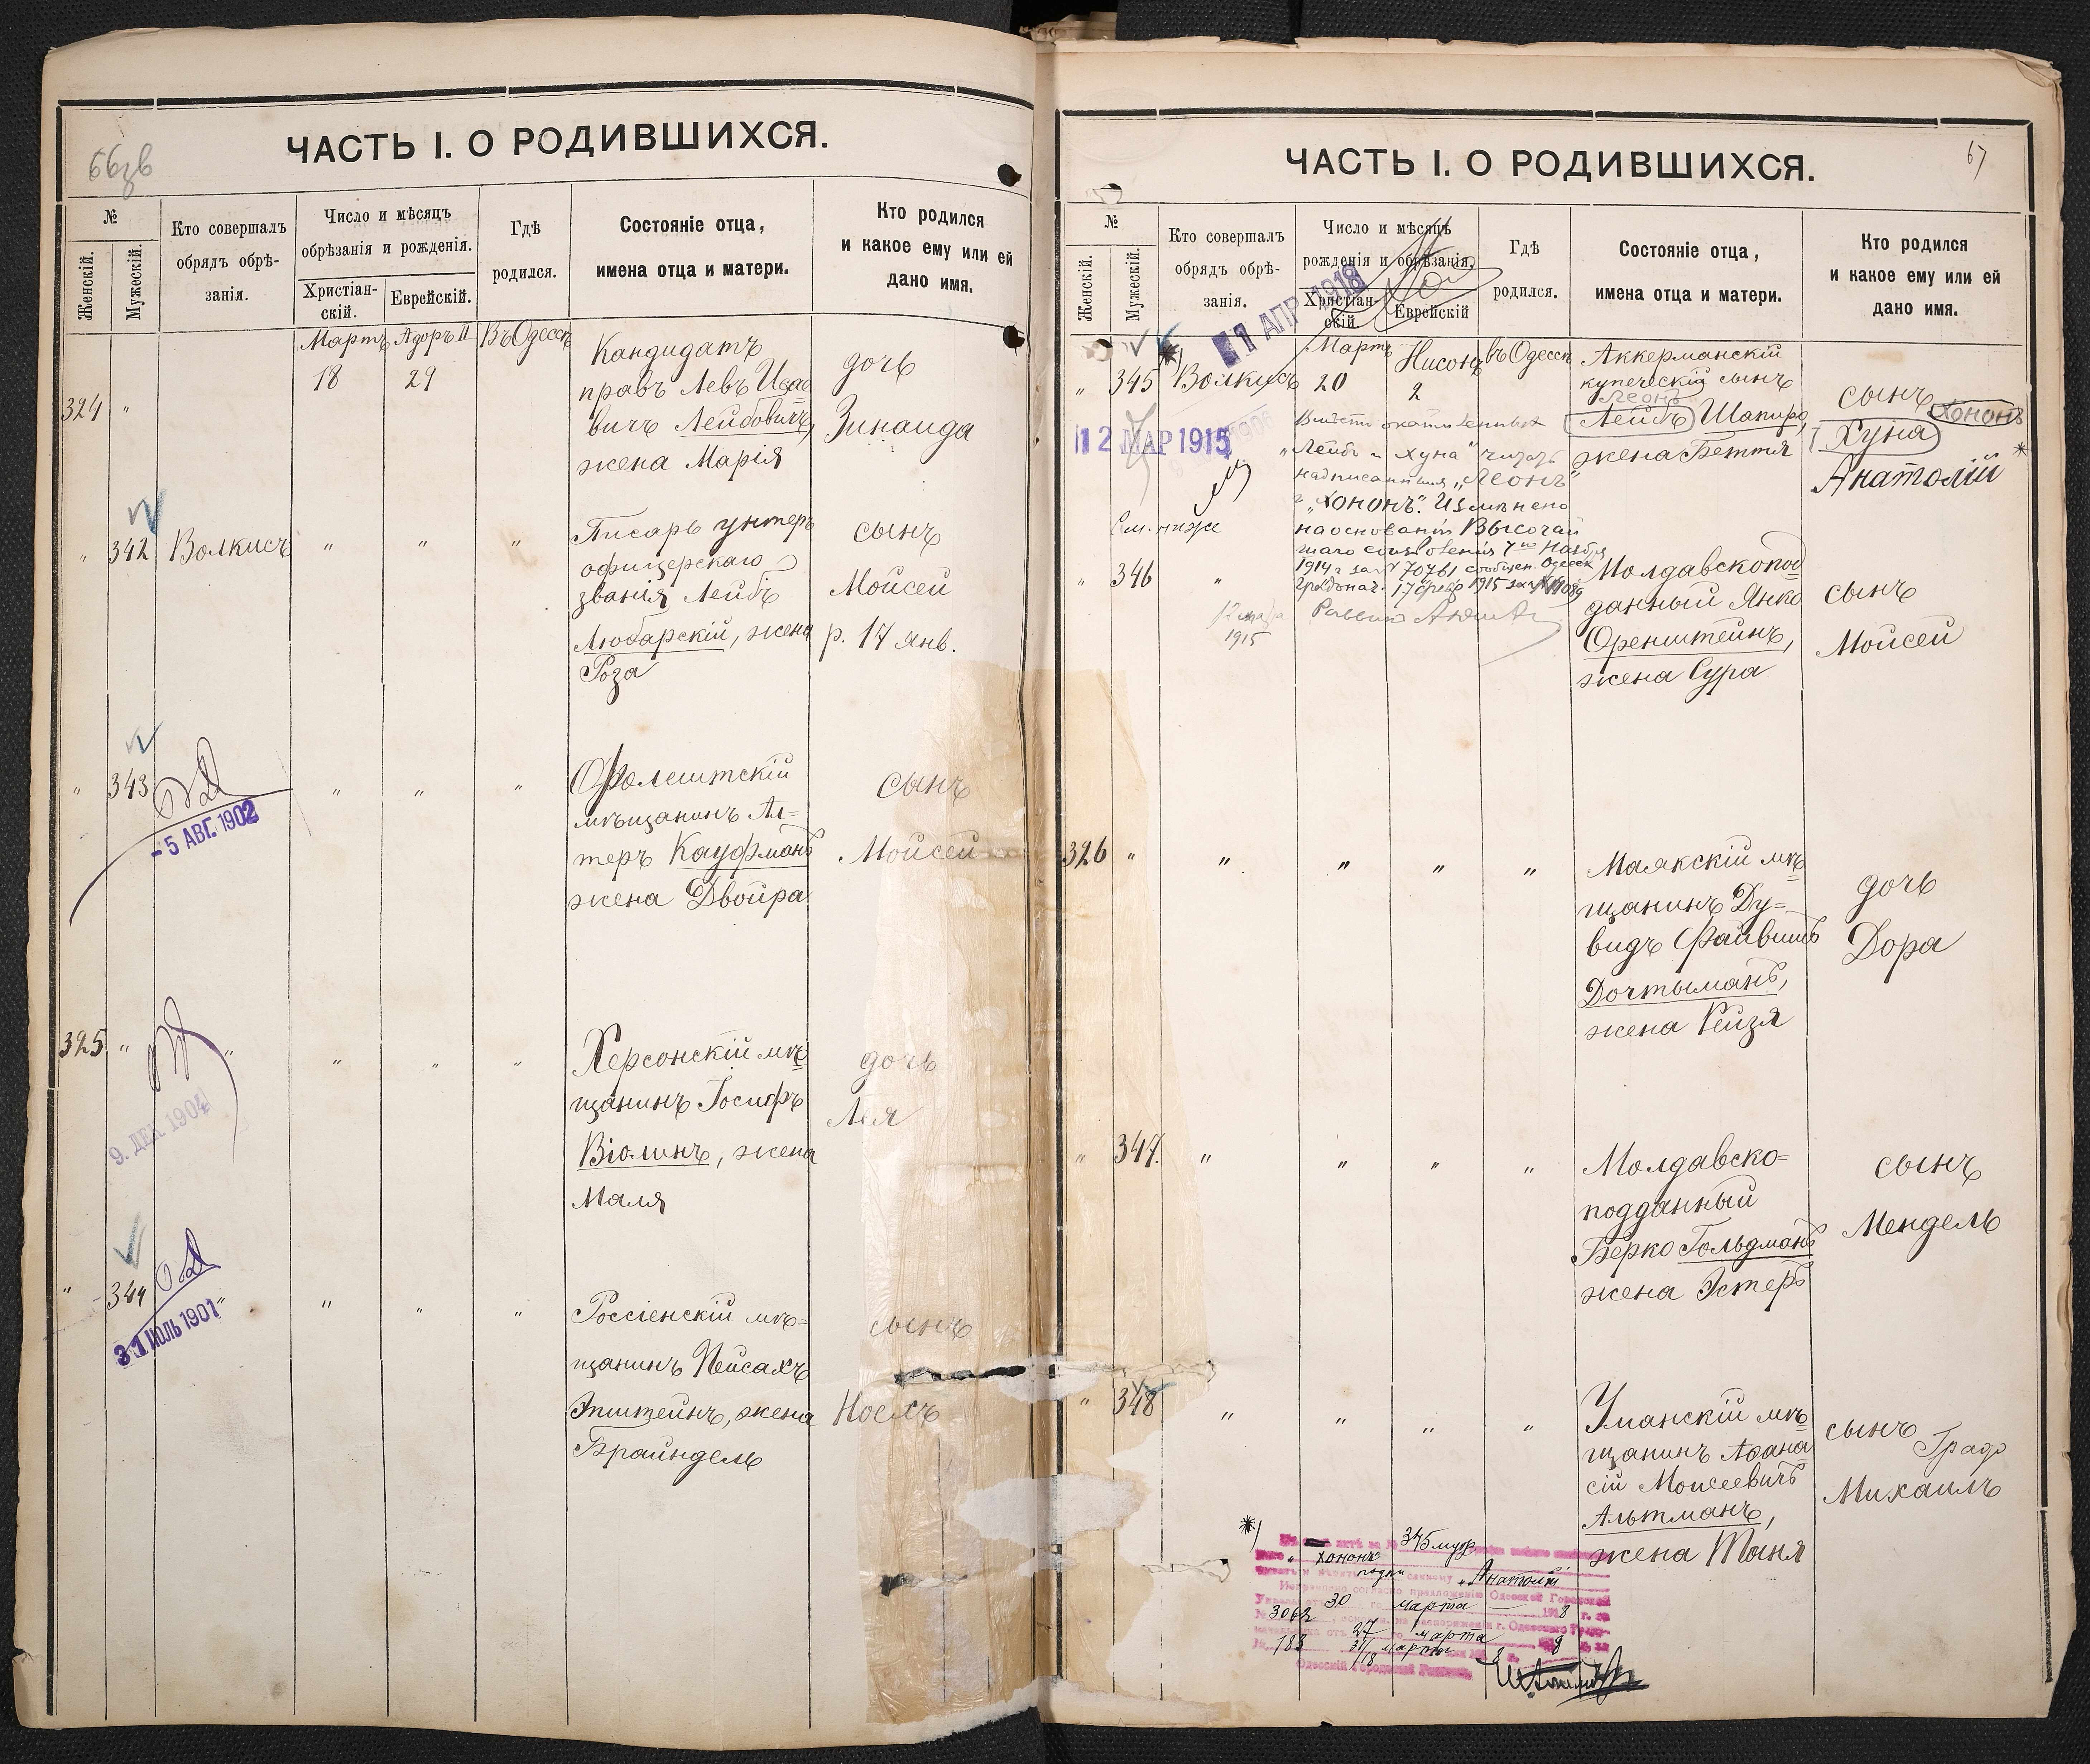 66
ЧАСТЬ I. О РОДИВШИХСЯ.
№
Женскій.
Мужескій.
Кто совершалъ
обрядъ обрѣ-
занія.
Число и мѣсяцъ
обрѣзанія и рожденія.
Христіан-
скій.
Еврейскій.
Гдѣ
родился.
Состояніе отца,
имена отца и матери.
Кто родился
и какое ему или ей
дано имя.
324
"
Мартъ
18
Адоръ II
29
Въ Одессѣ
Кандидатъ
правъ Левъ
вичъ Лейбовичъ,
жена Марія
дочь
Зинаида
"
342
Волкисъ
"
"
"
Писарь унтеръ
офицерскаго
званія Лейбъ
Любарскій, жена
Роза
сынъ
Мойсей
р. 17 янв.
"
343
- 5 АВГ. 1902
"
"
"
Фалештскій
мѣщанинъ Ал=
теръ Кауфманъ
жена Двойра
сынъ
Мойсей
325
"
"
9. ДЕК 1904
"
"
"
Херсонскій мѣ=
щанинъ Іосифъ
Віолинъ, жена
Маля
дочь
Лея
"
344
"
31 ІЮЛЬ 1901
"
"
"
Россіенскій мѣ=
щанинъ Пейсахъ
Эпштейнъ, жена
Брайндель
сынъ
Носхъ
67
ЧАСТЬ I. О РОДИВШИХСЯ.
№
Женскій.
Мужескій.
Кто совершалъ
обрядъ обрѣ-
занія.
Число и мѣсяцъ
рожденія и обрѣзанія.
Христіан-
скій.
Еврейскій
Гдѣ
родился.
Состояніе отца,
имена отца и матери.
Кто родился
и какое ему или ей
дано имя.
1 АПР 1918
"
345
*)
Волкисъ
Мартъ
20
Нисонъ
2
въ Одессѣ
Аккерманскій
купеческій сынъ
Леонъ
Лейбъ Шапиро,
жена Беття
сынъ
Хононъ
Хуна
*
Анатолій
12 МАР 1915
"Лейбъ и Хуна" читать
надписанныя "Леонъ"
и "Хононъ". Измѣнено
См. ниже
на основаніи Высочай
шаго соизволенія 7го Ноября
1914 г за № 70761 сообщен. Одесск
Градонач. 17 февр 1915 за №
1915
"
346
"
Молдавскопод=
данный Янко
Оренштейнъ,
жена Сура
сынъ
Мойсей
326
"
"
"
"
"
Маякскій мѣ=
щанинъ Ду=
видъ Файвишъ
Дочтыманъ,
жена Рейзя
дочь
Дора
"
347.
"
"
"
"
Молдавско=
подданный
Берко Гольдманъ
жена Эстеръ
сынъ
Мендель
"
348
"
"
"
"
Уманскій мѣ=
щанинъ Афана
сій Моисеевичъ
Альтманъ,
жена Таня
сынъ
Михаилъ
*)
345 муж
"Хононъ"
"Анатолій
Исправлено согласно предложенію Одесской Городской
30 марта 1918 г.
№ 3062
27 марта
№ 183 31 марта
Одесскій Городовой Раввинъ